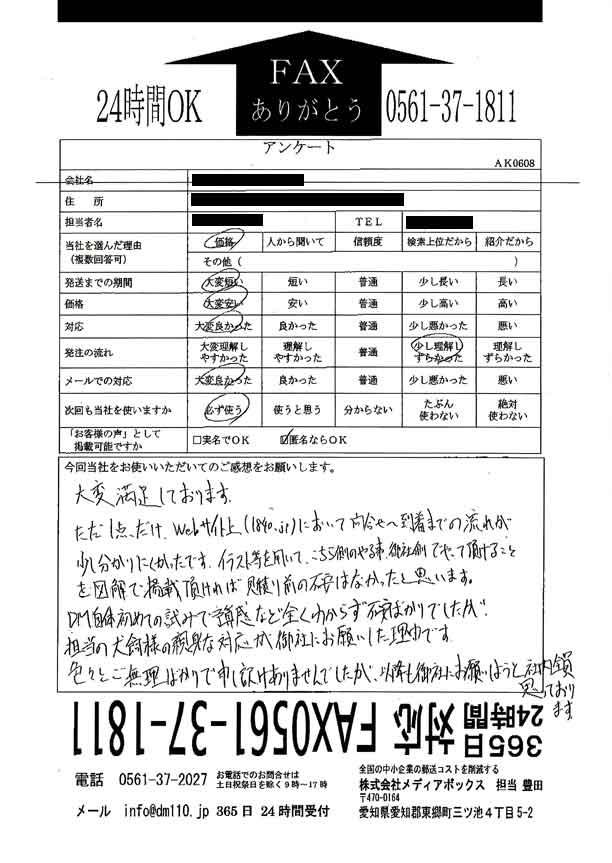 FAX
ありがとう
24時間OK
0561-37-1811
アンケート
AK0608
会社名
住　所
担当者名 TEL
当社を選んだ理由（複数回答可） 価格 人から聞いて 信頼度 検索上位だから 紹介だから
その他（ ）
発送までの期間 大変短い 短い 普通 少し長い 長い
価格 大変安い 安い 普通 少し高い 高い
対応 大変良かった 良かった 普通 少し悪かった 悪い
発注の流れ 大変理解しやすかった 理解しやすかった 普通 少し理解しずらかった 理解しずらかった
メールでの対応 大変良かった 良かった 普通 少し悪かった 悪い
次回も当社を使いますか 必ず使う 使うと思う 分からない たぶん使わない 絶対使わない
「お客様の声」として掲載可能ですか □実名でOK ☑匿名ならOK
今回当社をお使いいただいてのご感想をお願いします。
大変満足しております。
ただ1点だけ、Webサイト上(1840.jp)において問合せ〜到着までの流れが
少し分かりにくかったです。イラスト等を用いて、こちら側のやる事、御社側でやって頂けること
を図解で掲載頂ければ見積り前の不安はなかったと思います。
DM自体初めての試みで 感など全くわからず不安ばかりでしたが、
担当の犬飼様の親身な対応が御社にお願いした理由です。
色々とご無理ばかりで申し訳ありませんでしたが、以降も御社にお願いしようと社内全員
思っており
ます
365日
24時間
対応 FAX0561-37-1811
電話 0561-37-2027 お電話でのお問合せは
土日祝祭日を除く9時〜17時
メール info@dm110.jp 365日 24時間受付
全国の中小企業の郵送コストを削減する
株式会社メディアボックス 担当 豊田
〒470-0164
愛知県愛知郡東郷町三ツ池4丁目5-2